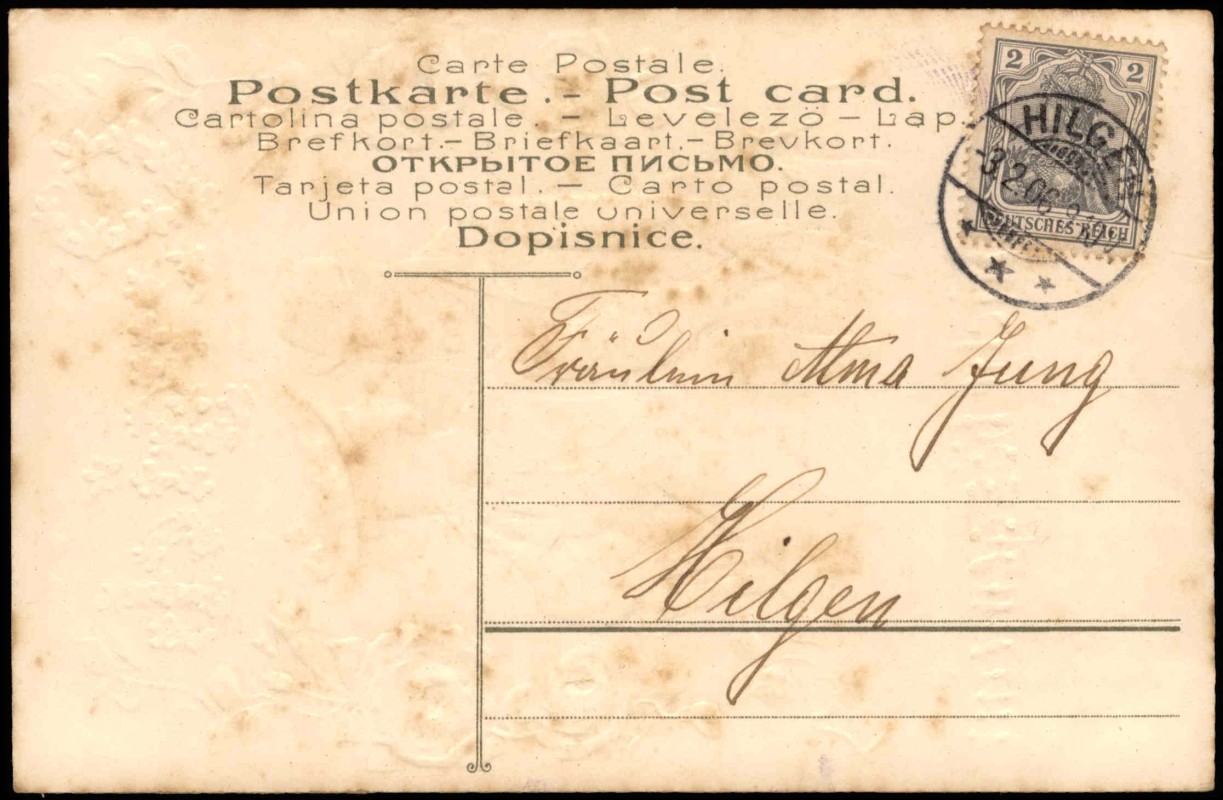 Carte Postale.
Postkarte. – Post card.
Cartolina postale. – Levelezö – Lap.
Brefkort. – Briefkaart. – Brevkort.
ОТКРЫТОЕ ПИСЬМО.
Tarjeta postal. – Carto postal.
Union postale universelle.
Dopisnice.
2 2
DEUTSCHES REICH
HILGEN
3.2.06
Fräulein Alma Jung
Hilgen